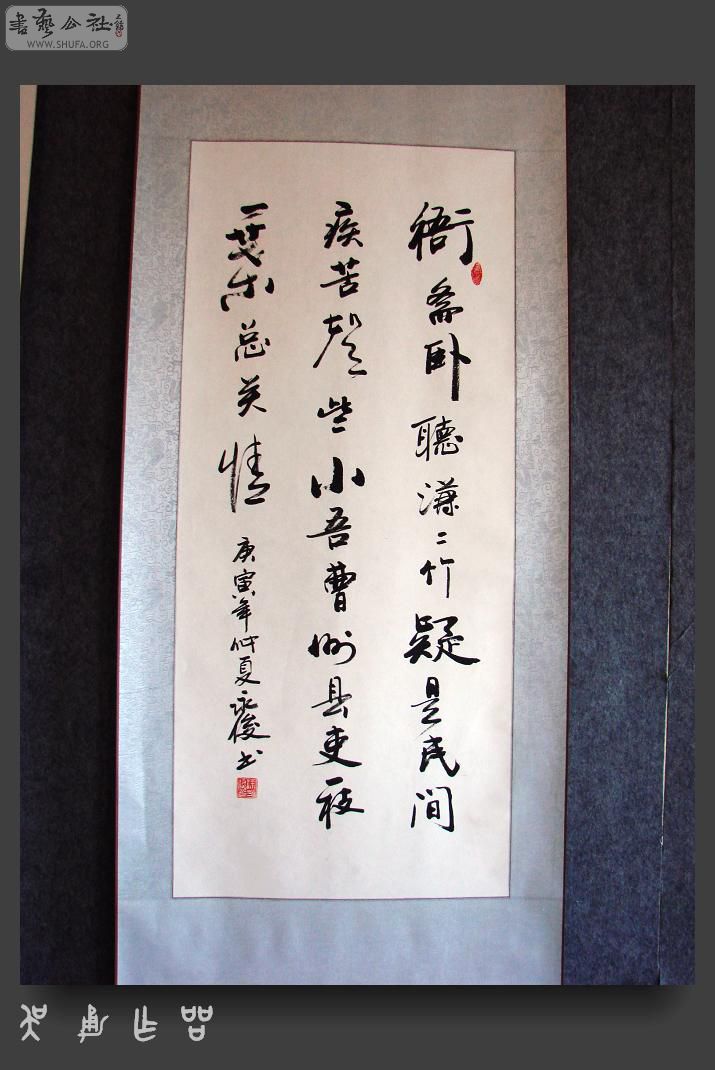 書藝公社
WWW.SHUFA.ORG
衙斋卧聽潇〻竹疑是民间
疾苦聲些小吾曹州县吏枝
一葉总关情
庚寅年仲夏永俊书